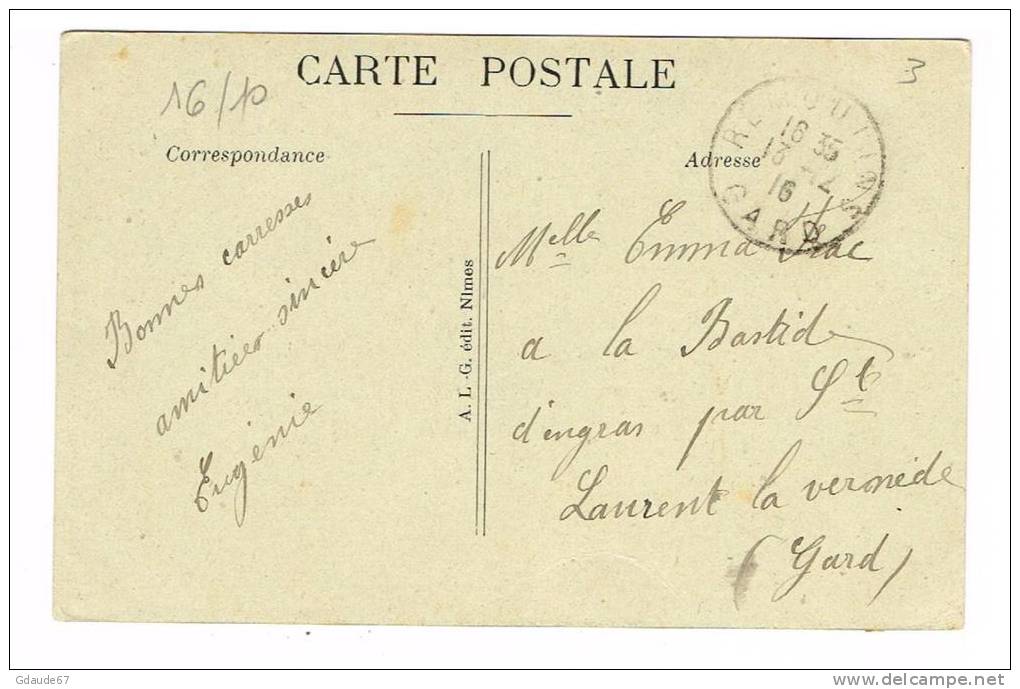 CARTE POSTALE
16/10
3
Correspondance
Adresse
REMOULINS
16 35
16
GARD
Bonnes carresses
amitiées sincère
Eugénie
A. L.-G. édit. Nîmes
Melle Emma
a la Bastide
d'engras par St
Laurent la vernède
(Gard)
Gdaude67
www.delcampe.net